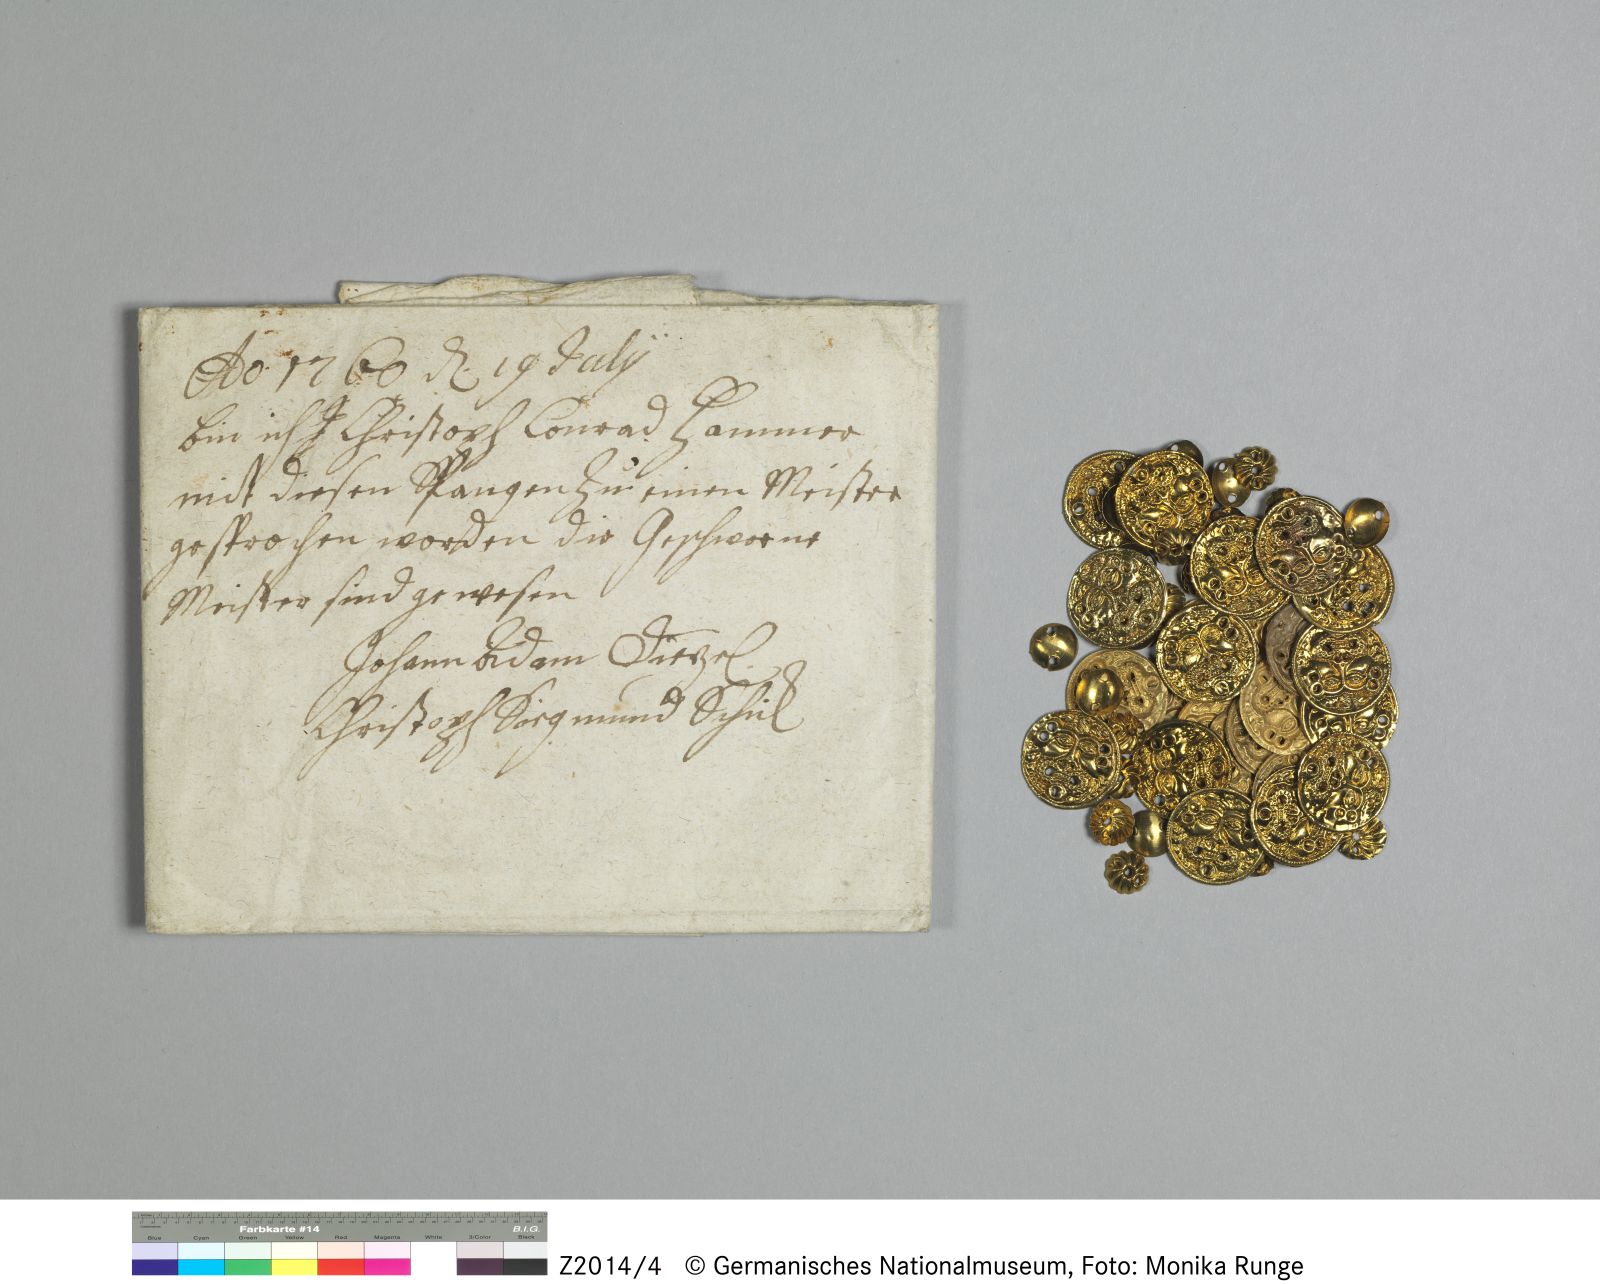 Ao 1760 d. 19 July
bin ich J Christoph Conrad Hammer
mit diesen Spangen zu einen Meister
gesprochen worden die Geschworne
Meister sind gewesen
Johann Adam Dietzel
Christoph Siegmund Schül
Farbkarte #14 B.I.G.
Blue Cyan Green Yellow Red Magenta White 3/Color Black
Z2014/4 © Germanisches Nationalmuseum, Foto: Monika Runge